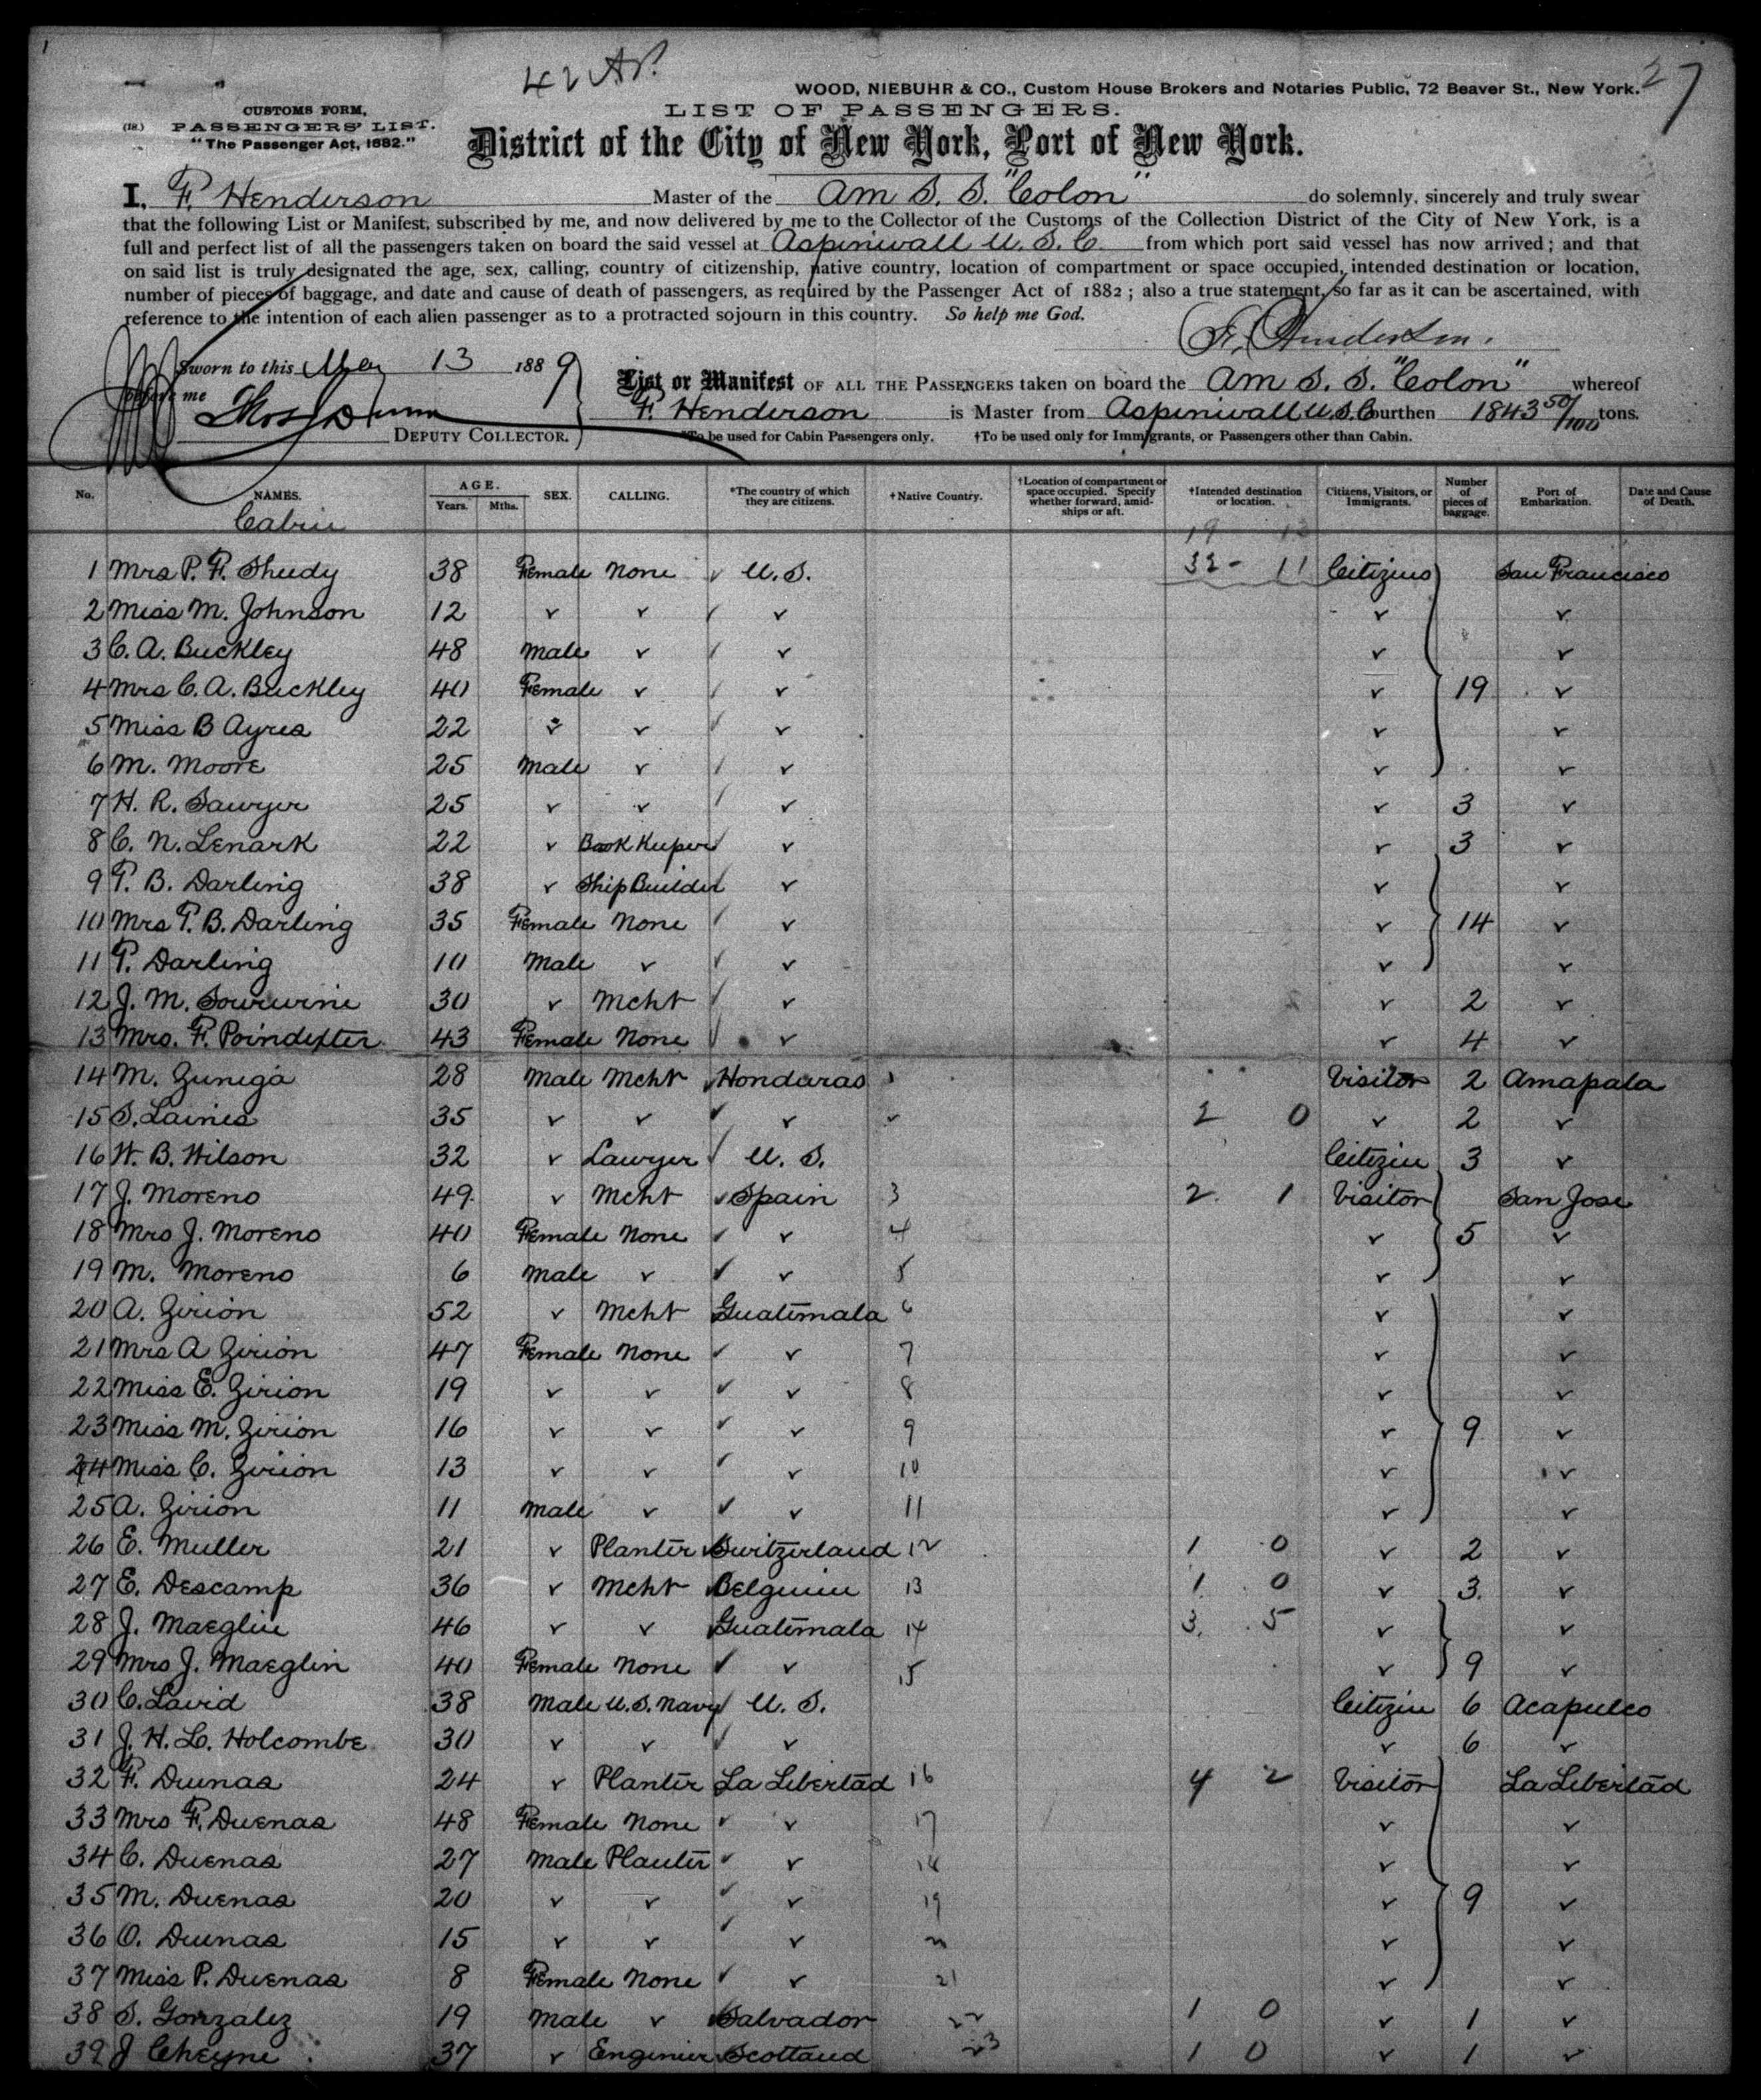 42 Ar.
27
WOOD, NIEBUHR & CO., Custom House Brokers and Notaries Public, 72 Beaver St., New York.
CUSTOMS FORM,
(18.) PASSENGERS' LIST.
"The Passenger Act, 1882."
LIST OF PASSENGERS.
District of the City of New York, Port of New York.
I, F. Henderson Master of the Am S. S. "Colon" do solemnly, sincerely and truly swear
that the following List or Manifest, subscribed by me, and now delivered by me to the Collector of the Customs of the Collection District of the City of New York, is a
full and perfect list of all the passengers taken on board the said vessel at Aspinwall U. S. C from which port said vessel has now arrived; and that
on said list is truly designated the age, sex, calling, country of citizenship, native country, location of compartment or space occupied, intended destination or location,
number of pieces of baggage, and date and cause of death of passengers, as required by the Passenger Act of 1882; also a true statement, so far as it can be ascertained, with
reference to the intention of each alien passenger as to a protracted sojourn in this country. So help me God.
F. Henderson.
Sworn to this May 13 1889
before me
Thos J Dunn
DEPUTY COLLECTOR.
List or Manifest OF ALL THE PASSENGERS taken on board the Am S. S. "Colon" whereof
F. Henderson is Master from Aspinwall U.S.C burthen 1843 50/100 tons.
*To be used for Cabin Passengers only. †To be used only for Immigrants, or Passengers other than Cabin.
No. NAMES. AGE. Years. Mths. SEX. CALLING. *The country of which they are citizens. †Native Country. †Location of compartment or space occupied. Specify whether forward, amidships or aft. †Intended destination or location. Citizens, Visitors, or Immigrants. Number of pieces of baggage. Port of Embarkation. Date and Cause of Death.
Cabin
19 13
1 Mrs P. F. Sheedy 38 Female None ✓ U.S. 32 - 11 Citizens San Francisco
2 Miss M. Johnson 12 ✓ ✓ ✓ ✓ ✓
3 C. A. Buckley 48 Male ✓ ✓ ✓ ✓
4 Mrs C. A. Buckley 40 Female ✓ ✓ ✓ 19 ✓
5 Miss B Ayres 22 ✓ ✓ ✓ ✓ ✓
6 M. Moore 25 Male ✓ ✓ ✓ ✓
7 H. R. Sawyer 25 ✓ ✓ ✓ ✓ 3 ✓
8 C. N. Lenark 22 ✓ Book Keeper ✓ ✓ 3 ✓
9 P. B. Darling 38 ✓ Ship Builder ✓ ✓ ✓
10 Mrs P. B. Darling 35 Female None ✓ ✓ 14 ✓
11 P. Darling 10 Male ✓ ✓ ✓ ✓
12 J. M. Sowrwine 30 ✓ Mcht ✓ ✓ 2 ✓
13 Mrs. F. Poindexter 43 Female None ✓ ✓ 4 ✓
14 M. Zuniga 28 Male Mcht Honduras 1 Visitor 2 Amapala
15 S. Laines 35 ✓ ✓ ✓ ✓ 2 0 ✓ 2 ✓
16 W. B. Wilson 32 ✓ Lawyer U. S. Citizen 3 ✓
17 J. Moreno 49 ✓ Mcht ✓ Spain 3 2 1 Visitor San Jose
18 Mrs J. Moreno 40 Female None ✓ ✓ 4 ✓ 5 ✓
19 M. Moreno 6 Male ✓ ✓ ✓ 5 ✓ ✓
20 A. Zirion 52 ✓ Mcht Guatemala 6 ✓ ✓
21 Mrs A Zirion 47 Female None ✓ ✓ 7 ✓ ✓
22 Miss E. Zirion 19 ✓ ✓ ✓ ✓ 8 ✓ ✓
23 Miss M. Zirion 16 ✓ ✓ ✓ ✓ 9 ✓ 9 ✓
24 Miss C. Zirion 13 ✓ ✓ ✓ ✓ 10 ✓ ✓
25 A. Zirion 11 Male ✓ ✓ ✓ 11 ✓ ✓
26 E. Muller 21 ✓ Planter Switzerland 12 1 0 ✓ 2 ✓
27 E. Descamp 36 ✓ Mcht Belguim 13 1 0 ✓ 3 ✓
28 J. Maeglin 46 ✓ ✓ Guatemala 14 3 5 ✓ ✓
29 Mrs J. Maeglin 40 Female None ✓ ✓ 15 ✓ 9 ✓
30 C. Lavid 38 Male U.S. Navy U. S. Citizen 6 Acapulco
31 J. H. L. Holcombe 30 ✓ ✓ ✓ ✓ ✓ 6 ✓
32 F. Duenas 24 ✓ Planter La Libertad 16 4 2 Visitor La Libertad
33 Mrs F. Duenas 48 Female None ✓ ✓ 17 ✓ ✓
34 C. Duenas 27 Male Planter ✓ ✓ 18 ✓ ✓
35 M. Duenas 20 ✓ ✓ ✓ ✓ 19 ✓ 9 ✓
36 O. Duenas 15 ✓ ✓ ✓ ✓ ✓ ✓
37 Miss P. Duenas 8 Female None ✓ ✓ 21 ✓ ✓
38 S. Gonzalez 19 Male ✓ Salvador 22 1 0 ✓ 1 ✓
39 J Cheyne 37 ✓ Enginier Scotland 23 1 0 ✓ 1 ✓